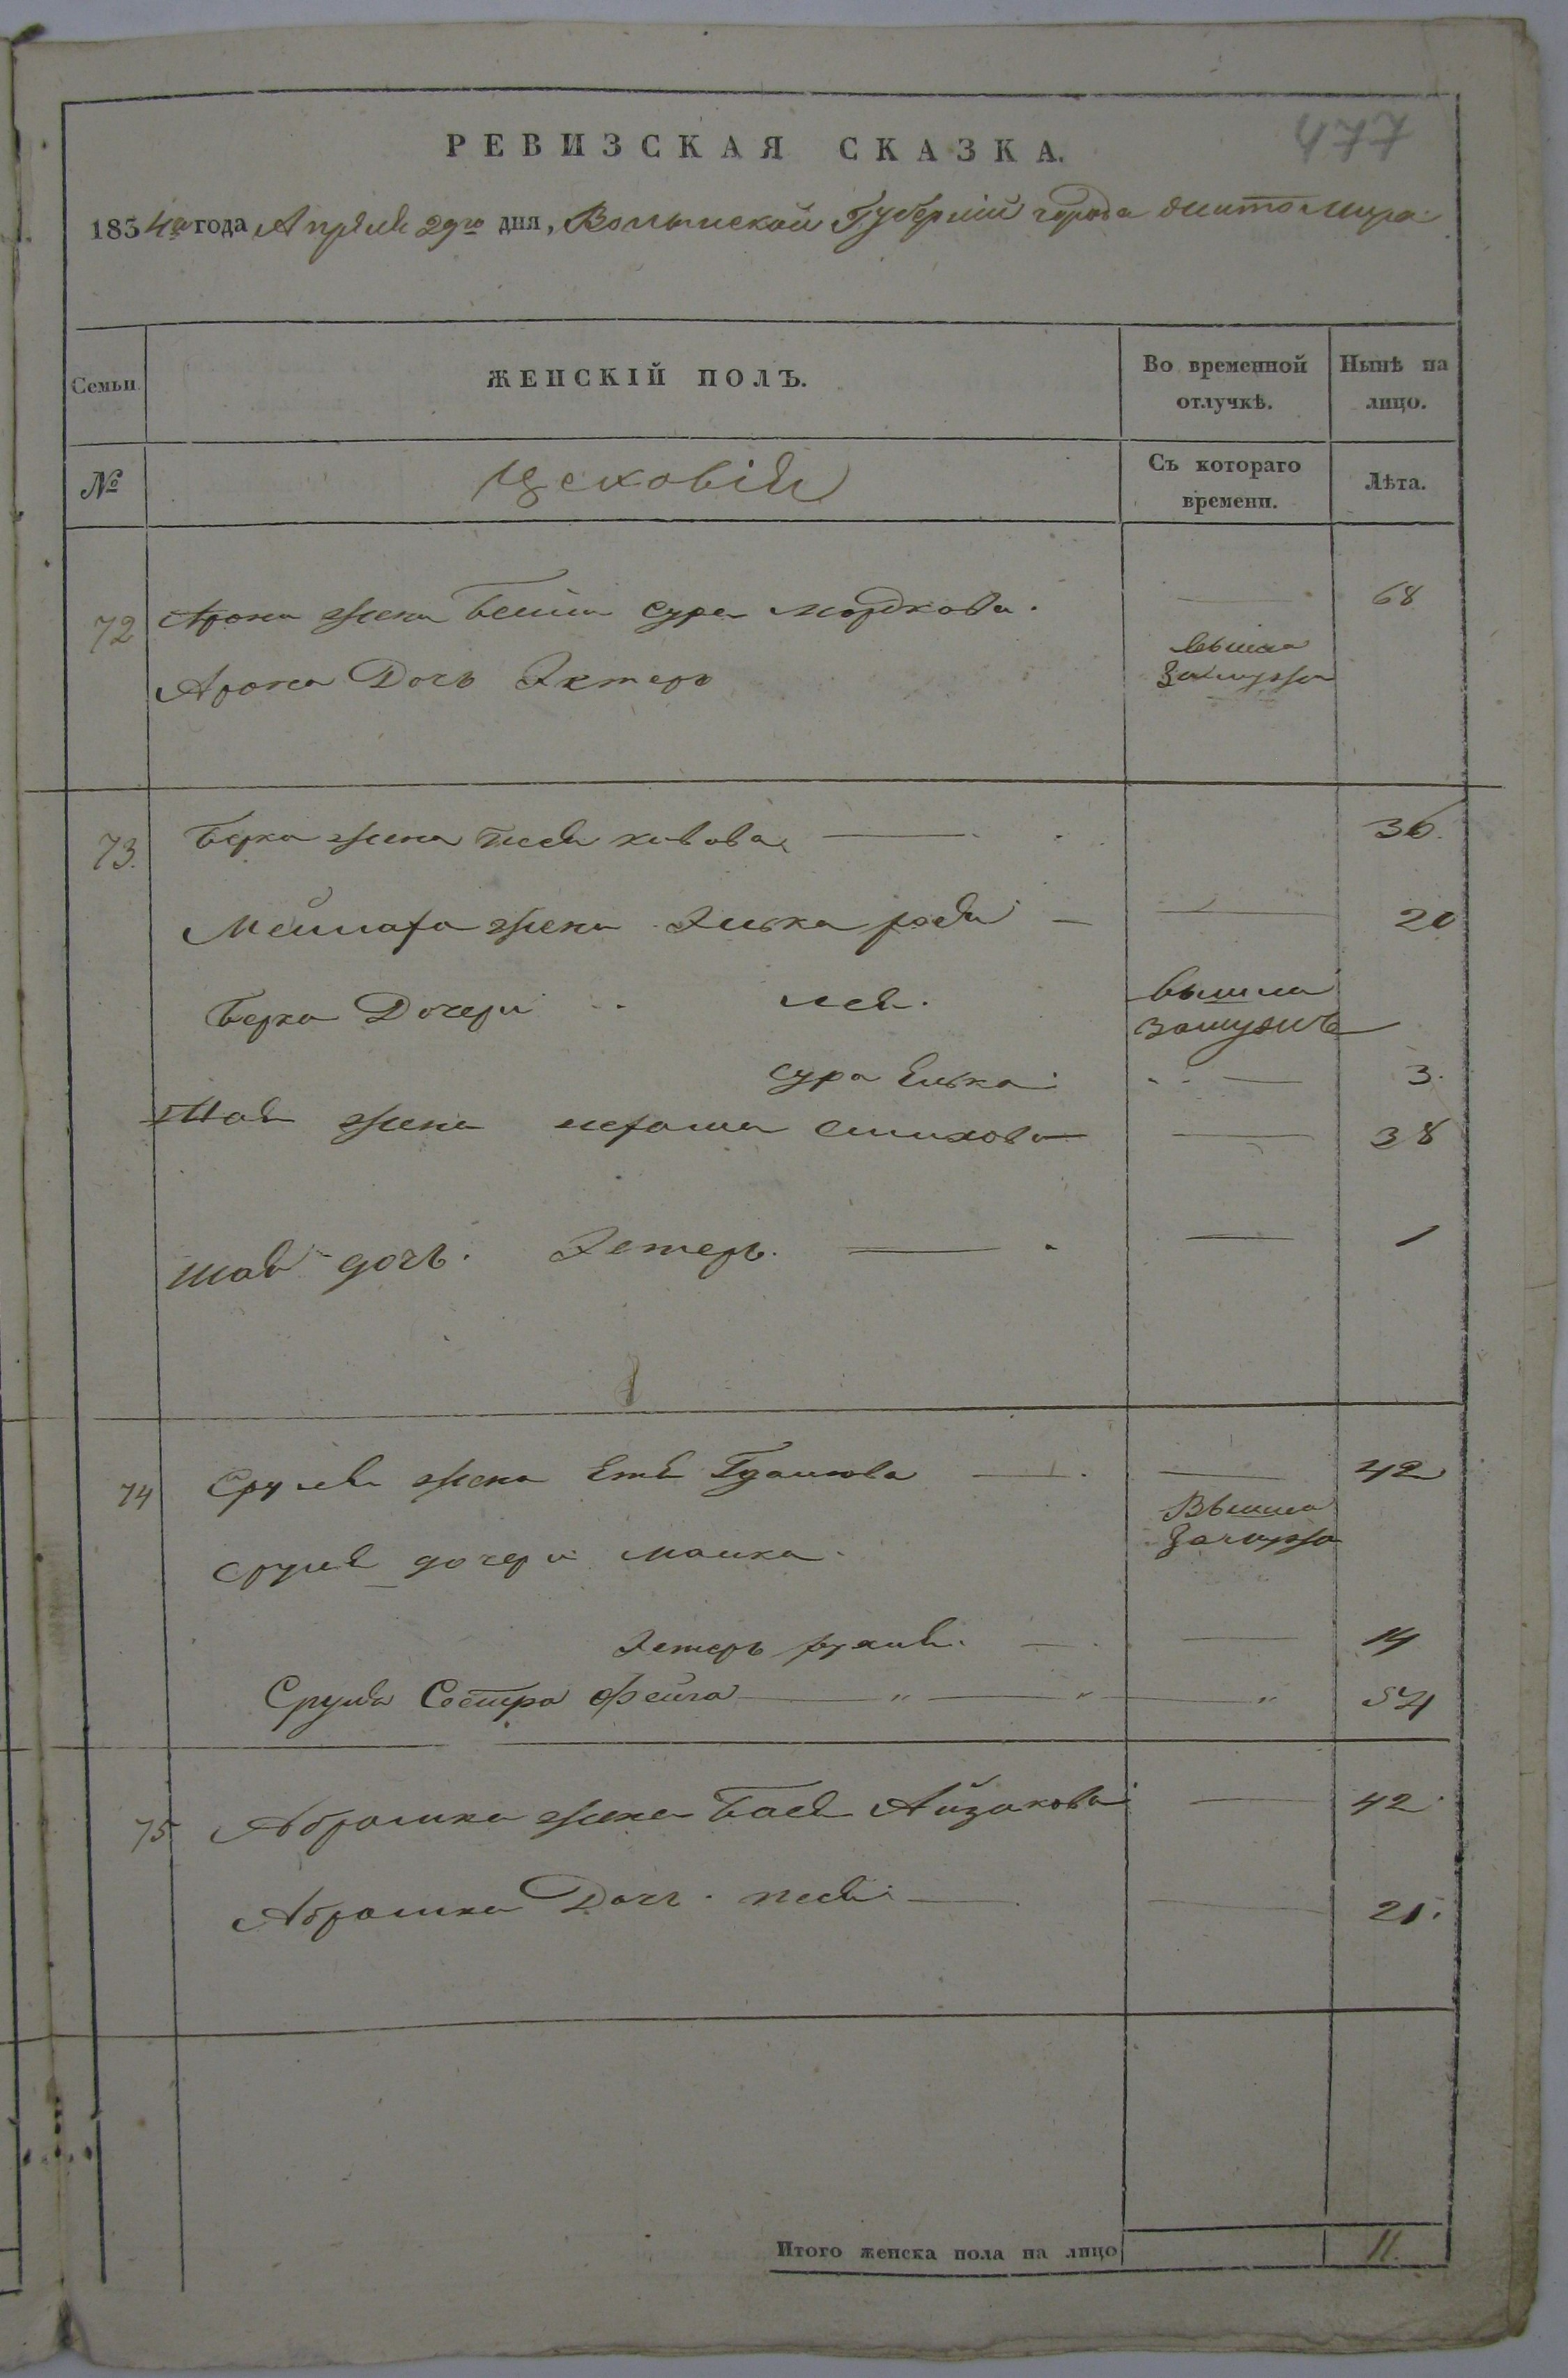 477
РЕВИЗСКАЯ СКАЗКА.
1834го года Апреля 29го дня, Волынской Губернiи города Житомира
Семьи
ЖЕНСКIЙ ПОЛЪ.
Во временной отлучкѣ.
Нынѣ на лицо.
№
Цеховiя
Съ котораго времени.
Лѣта.
72 Арона жена Бейла Сура Мордкова. — 68
Арона Дочь Эстеръ вышла замужъ
73. Берка жена Песя — 36.
жена Элька рося — — 20
Берка Дочери Лея. вышла замужъ
Сура Елька — 3.
Шаи жена — 38
Шаи дочь. Эстеръ. — — 1
74 Сруля жена Етя — — 42
Сруля дочери Малка. Вышла замужъ
Эстеръ рухля. — — 14
Сруля Сестра Фейга — „ — „ — „ 54
75 Абрамка жена Бася Айзикова — 42
Абрамка Дочь Песя — — 21.
Итого женска пола на лицо 11.